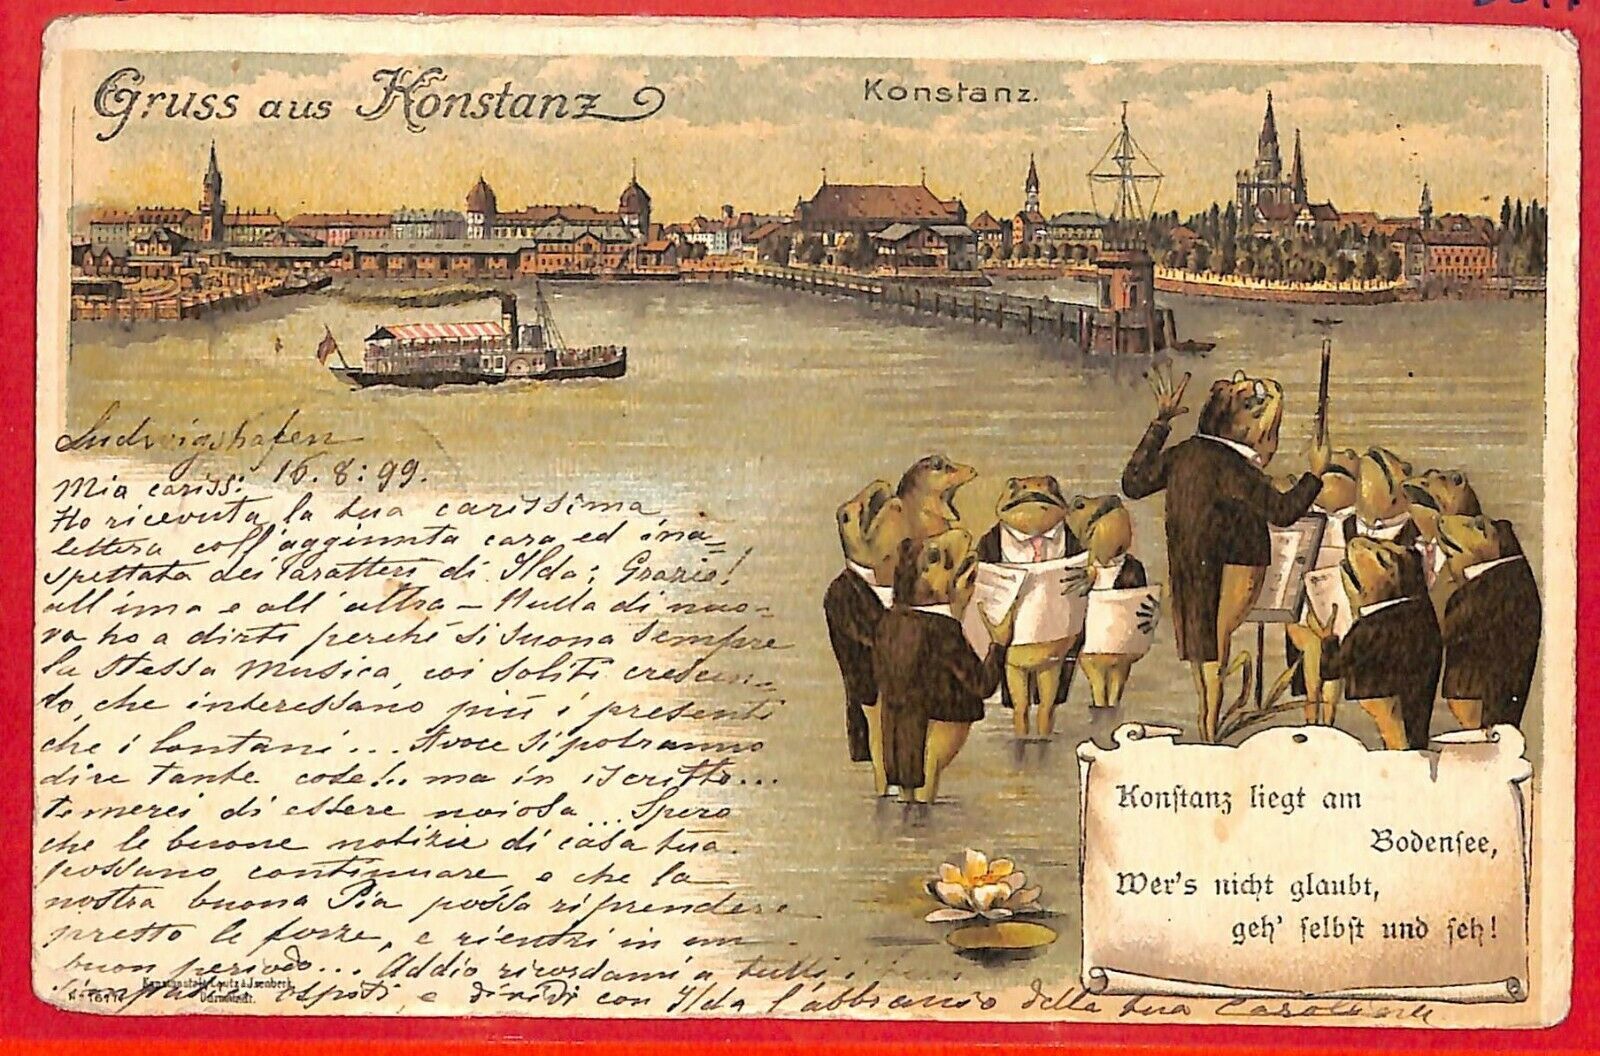 Gruss aus Konstanz
Konstanz.
Ludwigshafen
16. 8: 99.
Mia cariss:
Ho ricevuta la tua carissima
lettera coll'aggiunta cara ed ina-
spettata dei caratteri di Ilda; Grazie!
all'una e all'altra - Nulla di nuo-
va ho a dirti perché si suona sempre
la stessa musica, coi soliti crescen-
do, che interessano più i presenti
che i lontani... A voce si potranno
dire tante cose!.. ma in iscritto...
temerei di essere noiosa... Spero
che le buone notizie di casa tua
possano continuare e che la
nostra buona Pia possa riprendere
presto le forze, e rientri in un
buon periodo... Addio ricordami a tutti i tuoi
simpatici ospiti, e dividi con Ilda l'abbraccio della tua
Kunstanstalt Lautz & Isenbeck
Darmstadt.
Konſtanz liegt am
Bodenſee,
Wer's nicht glaubt,
geh' ſelbſt und ſeh!